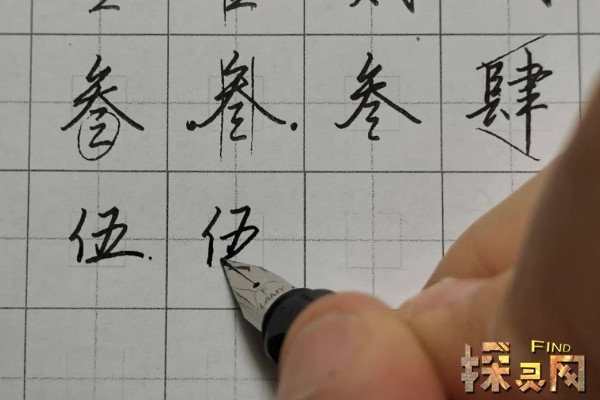 叁 叁 叁 肆
伍 伍
LAMY
FIND
探灵网